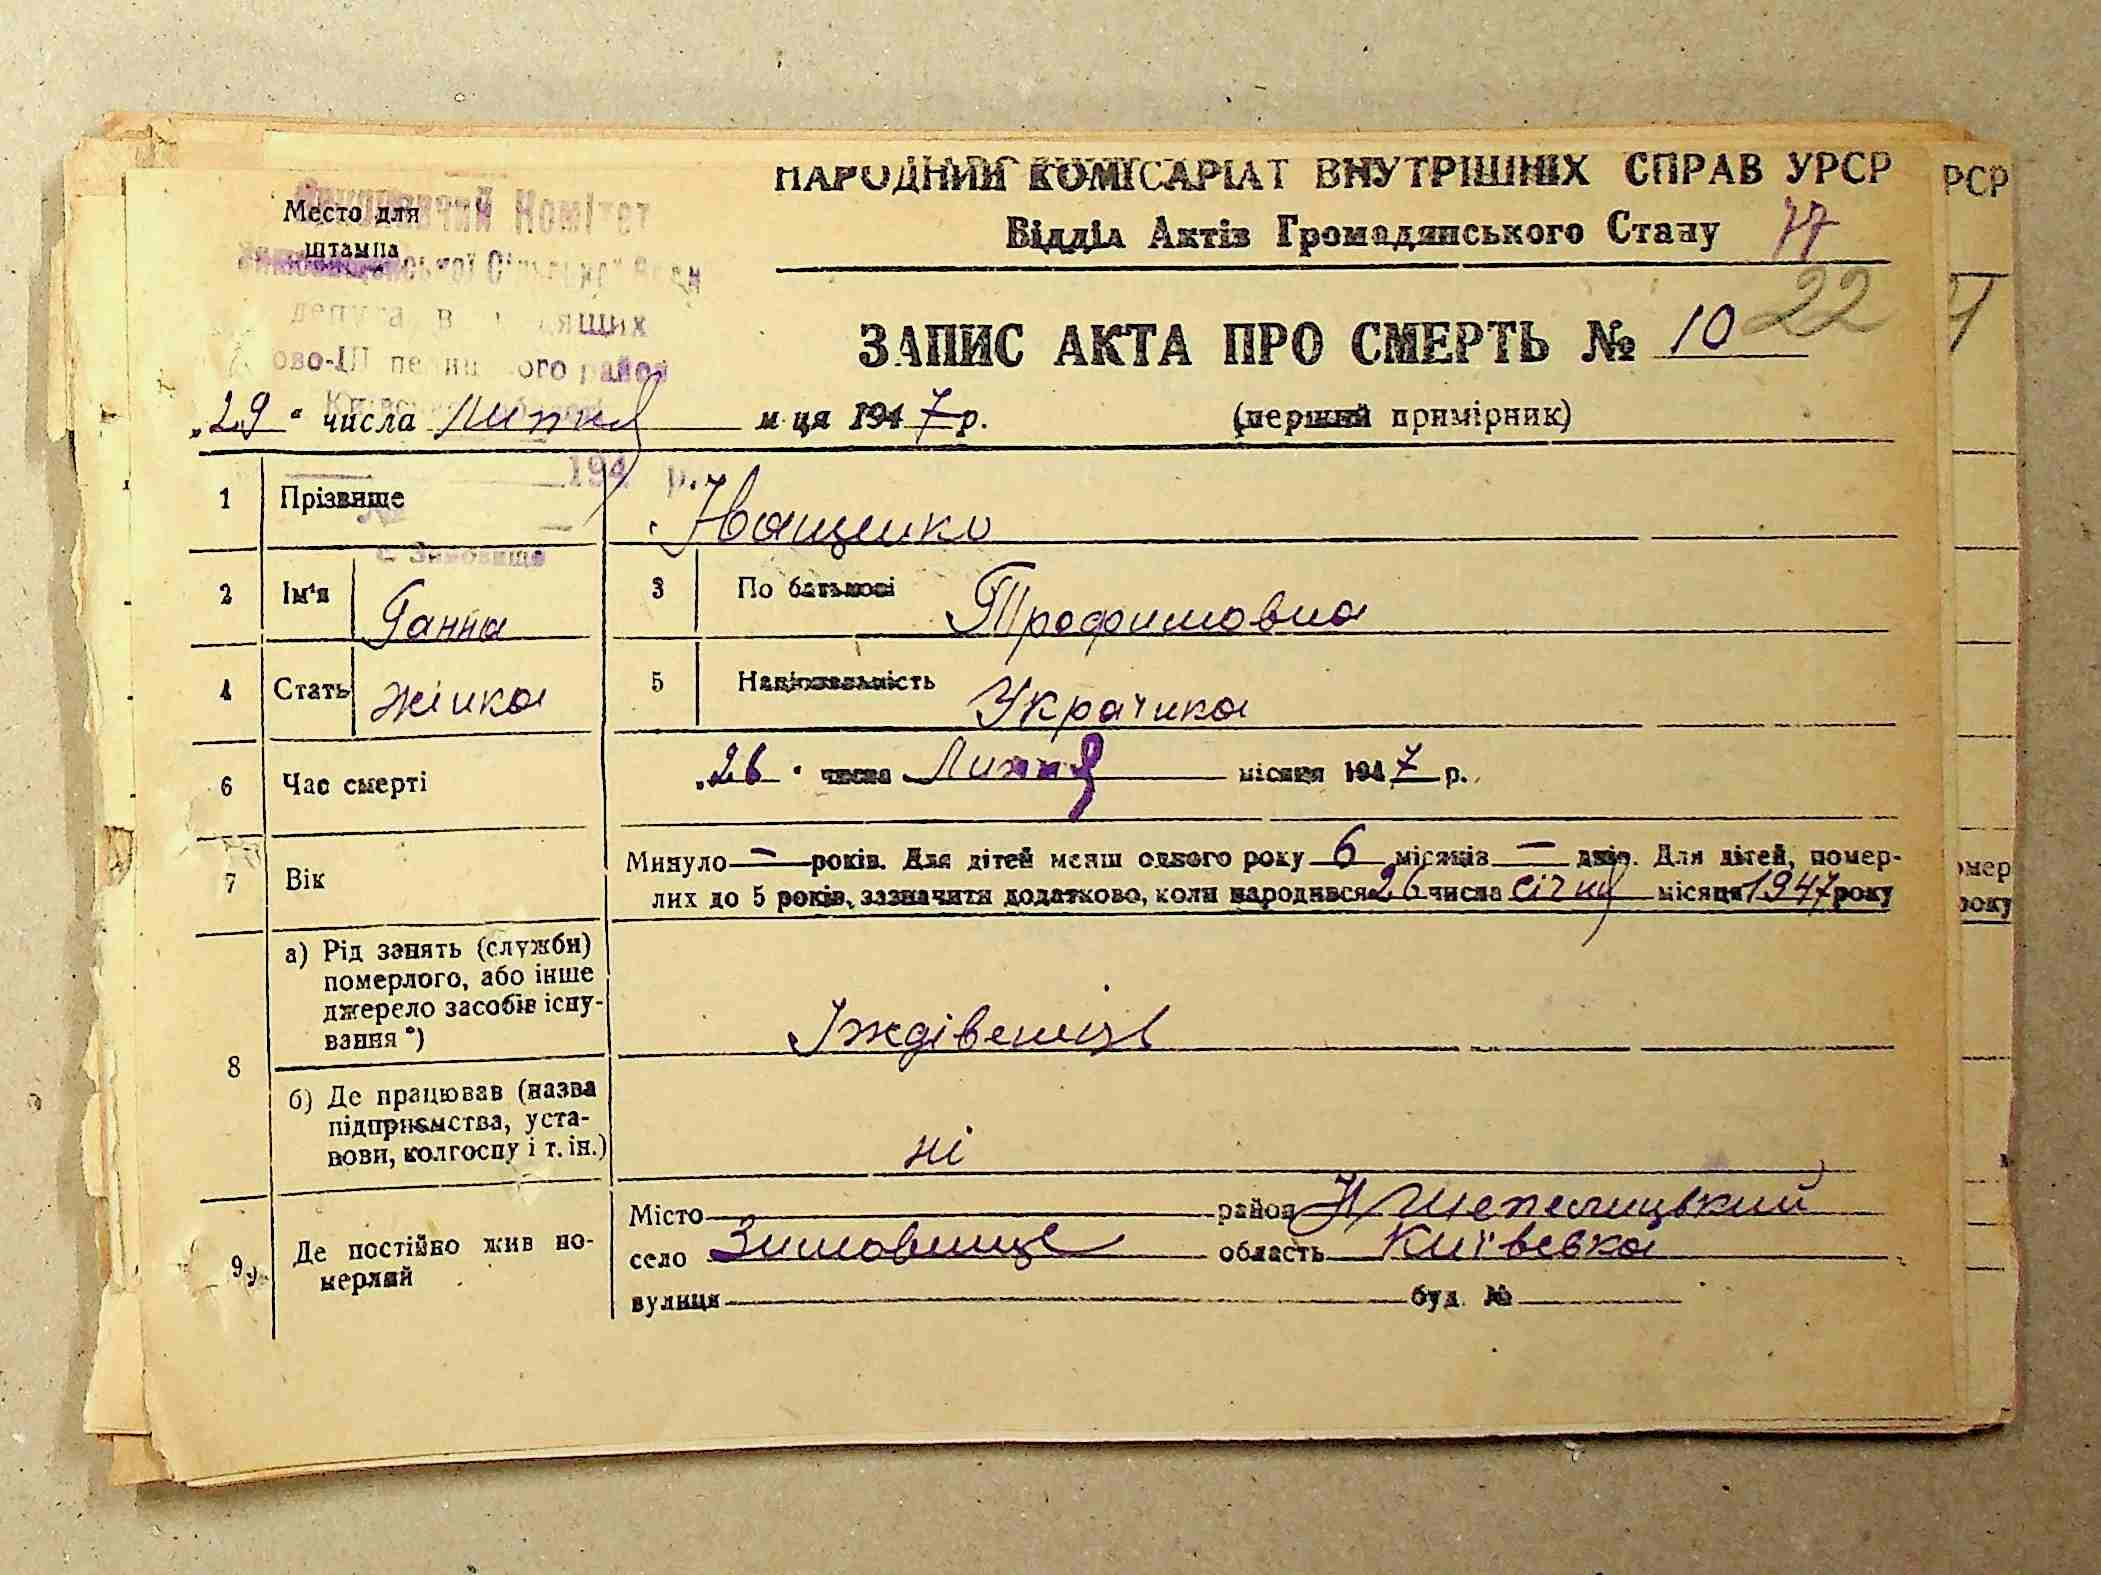 НАРОДНИЙ КОМІСАРІАТ ВНУТРІШНІХ СПРАВ УРСР
РСР
Место для
штампа
Виконавчий Комітет
Відділ Актів Громадянського Стану 77
Сільської Ради
депутатів трудящих
ЗАПИС АКТА ПРО СМЕРТЬ № 10 22
21
ово-Шепелицького району
Київської області
„29“ числа Липня м-ця 1947 р. (перший примірник)
194 р.
№
с. Зимовище
1 Прізвище Іващенко
2 Ім'я Ганна 3 По батькові Трофимовна
4 Стать жінка 5 Національність Українка
6 Час смерті „26“ числа Липня місяця 1947 р.
7 Вік Минуло — років. Для дітей менш одного року 6 місяців — днів. Для дітей, помер-
лих до 5 років, зазначити додатково, коли народився 26 числа січня місяця 1947 року
омер
року
8 а) Рід занять (служби)
померлого, або інше
джерело засобів існу-
вання *)
Іждівенець
б) Де працював (назва
підприємства, уста-
нови, колгоспу і т. ін.)
ні
9 Де постійно жив по-
мерлий
Місто район Н/Шепелицький
село Зимовище область Київська
вулиця буд. №